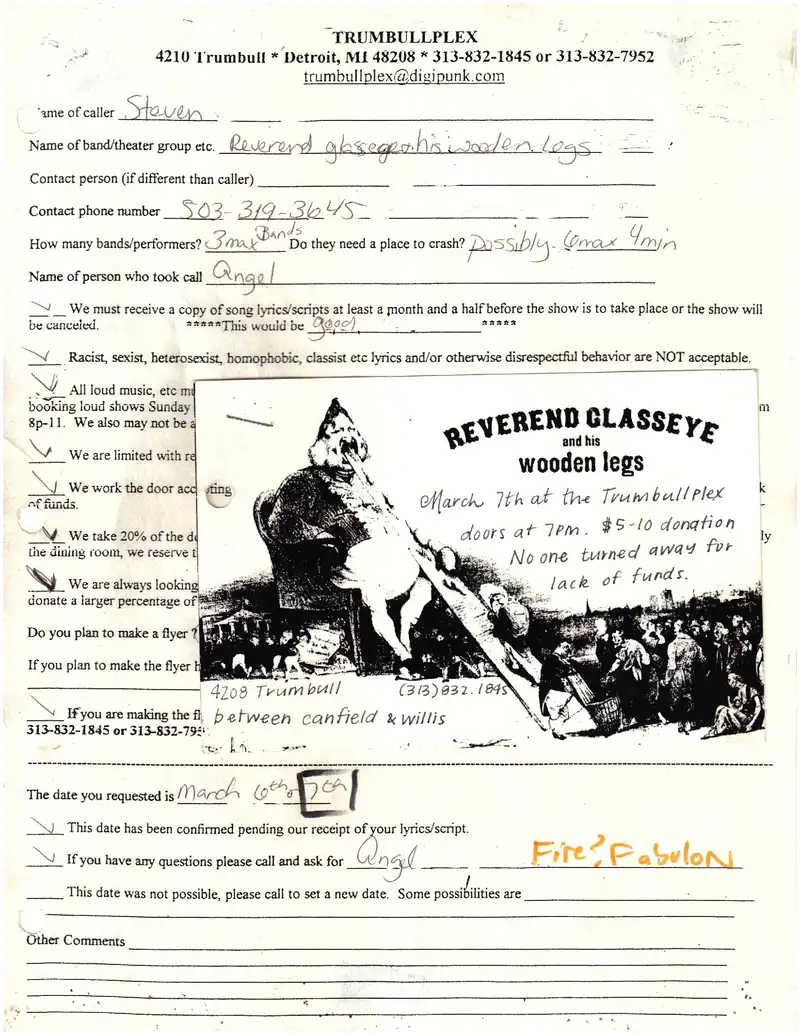 TRUMBULLPLEX
4210 Trumbull * Detroit, MI 48208 * 313-832-1845 or 313-832-7952
trumbullplex@digipunk.com
ame of caller Steven
Name of band/theater group etc. Reverend glasseye & his wooden legs
Contact person (if different than caller)
Contact phone number 503-319-3645
How many bands/performers? 3 max Bands Do they need a place to crash? possibly. 6 max 4 min
Name of person who took call Angel
We must receive a copy of song lyrics/scripts at least a month and a half before the show is to take place or the show will
be canceled. *****This would be good *****
Racist, sexist, heterosexist, homophobic, classist etc lyrics and/or otherwise disrespectful behavior are NOT acceptable.
All loud music, etc mu
booking loud shows Sunday m
8p-11. We also may not be a
We are limited with re
We work the door acc k
of funds.
We take 20% of the d ly
the dining room, we reserve t
We are always looking
donate a larger percentage of
Do you plan to make a flyer ?
If you plan to make the flyer h
If you are making the fl
313-832-1845 or 313-832-795
REVEREND GLASSEYE
and his
wooden legs
March 7th at the Trumbullplex
doors at 7pm. $5-10 donation
No one turned away for
lack of funds.
4208 Trumbull (313)832.1845
between canfield & willis
The date you requested is March 6th or 7th
This date has been confirmed pending our receipt of your lyrics/script.
If you have any questions please call and ask for Angel
Fire? Fabulon
This date was not possible, please call to set a new date. Some possibilities are
Other Comments